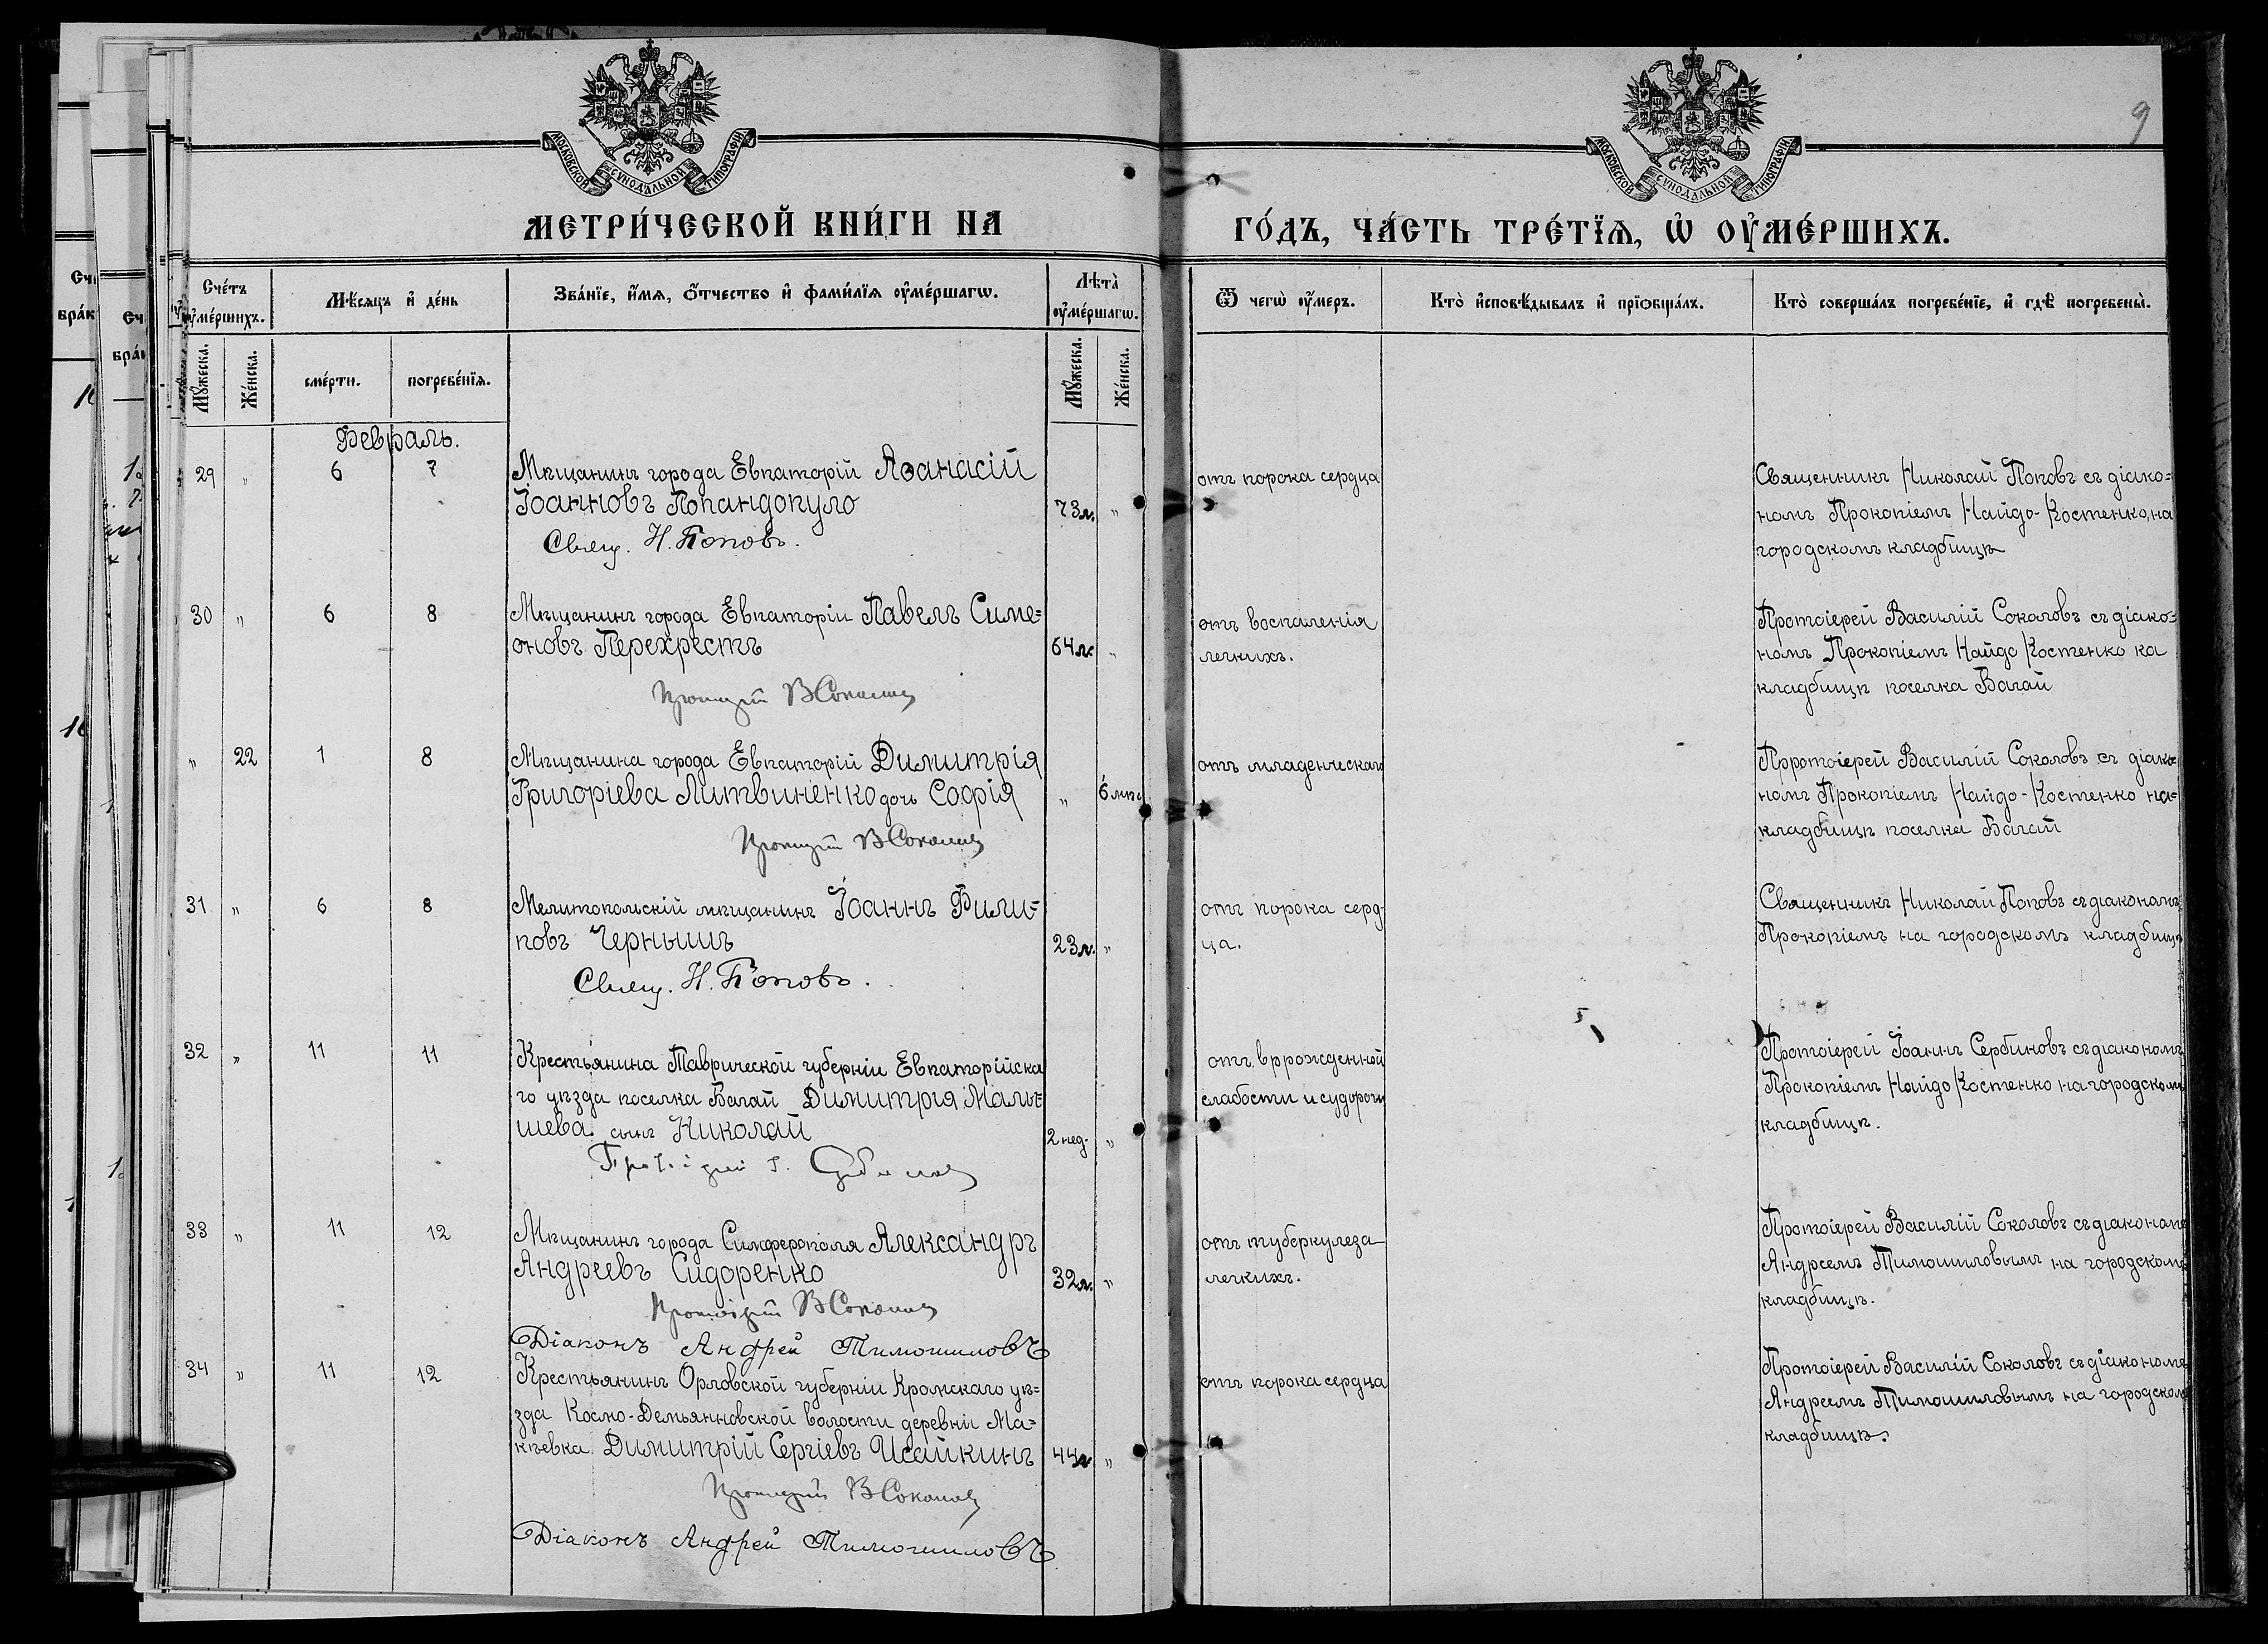 МОСКОВСКОЙ СѴНОДАЛЬНОЙ ТИПОГРАФІИ
МОСКОВСКОЙ СѴНОДАЛЬНОЙ ТИПОГРАФІИ
9
МЕТРИ́ЧЕСКОЙ КНИ́ГИ НА
ГО́ДЪ, ЧА́СТЬ ТРЕ́ТЇѦ, Ѡ҆ ОУ҆МЕ́РШИХЪ.
Сче́тъ оу҆ме́ршихъ.
Мѣ́сѧцъ и҆ де́нь
Зва́нїе, и҆́мѧ, ѻ҆́тчество и҆ фами́лїѧ оу҆ме́ршагѡ.
Лѣта̀ оу҆ме́ршагѡ.
Ѿ чегѡ̀ оу҆́меръ.
Кто̀ и҆сповѣ́дывалъ и҆ прїѻбща́лъ.
Кто̀ соверша́лъ погребе́нїе, и҆ гдѣ̀ погребены̀.
Мꙋ́жеска.
Же́нска.
сме́рти.
погребе́нїѧ.
Мꙋ́жеска.
Же́нска.
Февраль.
29 „ 6 7 Мѣщанинъ города Евпаторій Аѳанасій
Іоанновъ Попандопуло 73 л. „
Свящ. Н. Поповъ.
отъ порока сердца
Священникъ Николай Поповъ съ діако=
номъ Прокопіемъ Найдо-Костенко, на
городскомъ кладбищѣ
30 „ 6 8 Мѣщанинъ города Евпаторіи Павелъ Симе=
оновъ Перехрестъ 64 л. „
Протоіерей В Соколовъ
отъ воспаленія
легкихъ.
Протоіерей Василій Соколовъ съ діако=
номъ Прокопіемъ Найдо Костенко на
кладбищѣ поселка Багай
„ 22 1 8 Мѣщанина города Евпаторій Димитрія
Григоріева Литвиненко дочь Софія „ 6 мѣс
Протоіерей В Соколовъ
отъ младенческаго
Прротоіерей Василій Соколовъ съ діако=
номъ Прокопіемъ Найдо-Костенко на=
кладбищѣ поселка Багай
31 „ 6 8 Мелитопольскій мѣщанинъ Іоаннъ Фили=
повъ Чернышъ 23 л. „
Свящ. Н. Поповъ.
отъ порока серд-
ца.
Священникъ Николай Поповъ съ діакономъ
Прокопіемъ на городскомъ кладбищѣ
32 „ 11 11 Крестьянина Таврической губерніи Евпаторійска
го уѣзда поселка Багай Димитрія Малы=
шева сынъ Николай 2 нед. „
Протоіерей І. Сербиновъ
отъ вррожденной
слабости и судороги
Протоіерей Іоаннъ Сербиновъ съ діакономъ
Прокопіемъ Найдо Костенко на городскомъ
кладбищѣ.
33 „ 11 12 Мѣщанинъ города Симферополя Александръ
Андреевъ Сидоренко 32 л. „
Протоіерей В Соколовъ
Діаконъ Андрей Тимошиловъ
отъ туберкулеза
легкихъ.
Протоіерей Василій Соколовъ съ діакономъ
Андреемъ Тимошиловымъ на городскомъ
кладбищѣ.
34 „ 11 12 Крестьянинъ Орловской губерніи Кромскаго уѣ=
зда Космо-Демьянновской волости деревни Ма=
кѣевка Димитрій Сергіевъ Исайкинъ 44 л. „
Протоіерей В Соколовъ
Діаконъ Андрей Тимошиловъ
отъ порока сердца
Протоіерей Василій Соколовъ съ діакономъ
Андреемъ Тимошиловымъ на городскомъ
кладбищѣ.